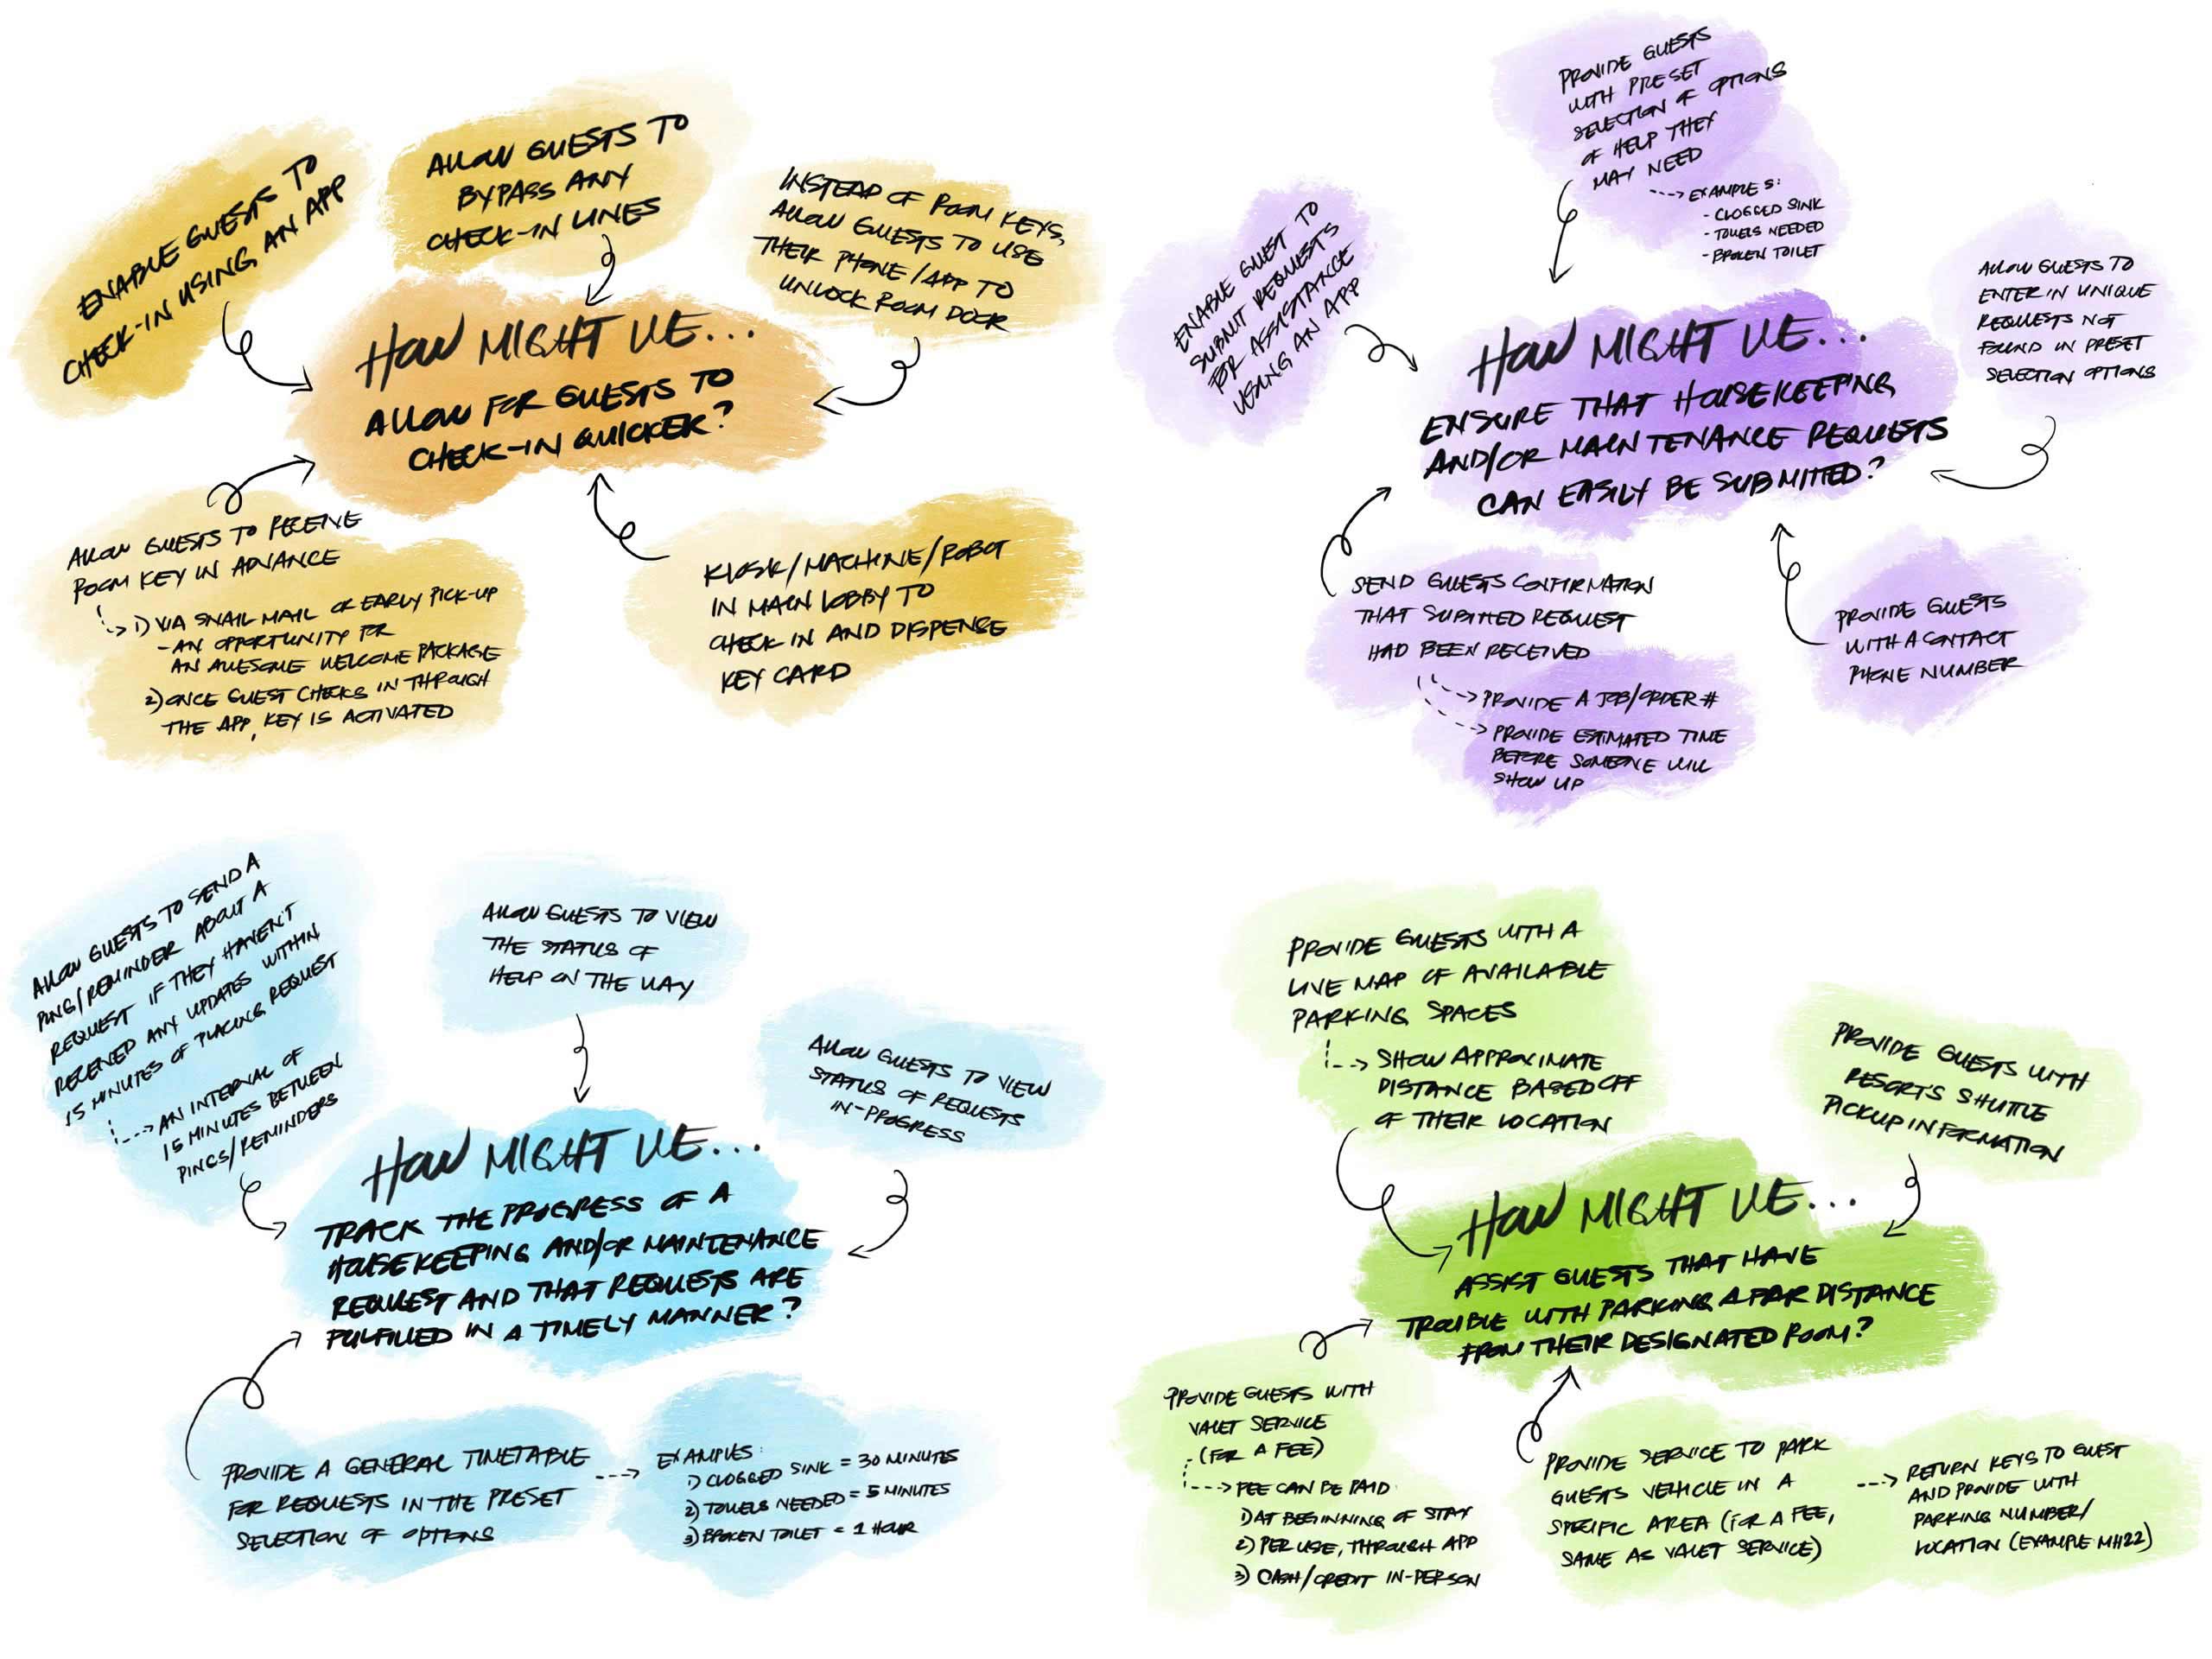 ENABLE GUESTS TO
CHECK-IN USING AN APP
ALLOW GUESTS TO
BYPASS ANY
CHECK-IN LINES
INSTEAD OF ROOM KEYS,
ALLOW GUESTS TO USE
THEIR PHONE/APP TO
UNLOCK ROOM DOOR
HOW MIGHT WE...
ALLOW FOR GUESTS TO
CHECK-IN QUICKER?
ALLOW GUESTS TO RECEIVE
ROOM KEY IN ADVANCE
1) VIA SNAIL MAIL OR EARLY PICK-UP
- AN OPPORTUNITY FOR
AN AWESOME WELCOME PACKAGE
2) ONCE GUEST CHECKS IN THROUGH
THE APP, KEY IS ACTIVATED
KIOSK/MACHINE/ROBOT
IN MAIN LOBBY TO
CHECK IN AND DISPENSE
KEY CARD
PROVIDE GUESTS
WITH PRESET
SELECTION OF OPTIONS
OF HELP THEY
MAY NEED
EXAMPLES:
- CLOGGED SINK
- TOWELS NEEDED
- BROKEN TOILET
ENABLE GUEST TO
SUBMIT REQUESTS
FOR ASSISTANCE
USING AN APP
ALLOW GUESTS TO
ENTER IN UNIQUE
REQUESTS NOT
FOUND IN PRESET
SELECTION OPTIONS
HOW MIGHT WE...
ENSURE THAT HOUSEKEEPING
AND/OR MAINTENANCE REQUESTS
CAN EASILY BE SUBMITTED?
SEND GUESTS CONFIRMATION
THAT SUBMITTED REQUEST
HAD BEEN RECEIVED
PROVIDE A JOB/ORDER #
PROVIDE ESTIMATED TIME
BEFORE SOMEONE WILL
SHOW UP
PROVIDE GUESTS
WITH A CONTACT
PHONE NUMBER
ALLOW GUESTS TO SEND A
PING/REMINDER ABOUT A
REQUEST IF THEY HAVEN'T
RECEIVED ANY UPDATES WITHIN
15 MINUTES OF PLACING REQUEST
AN INTERVAL OF
15 MINUTES BETWEEN
PINGS/REMINDERS
ALLOW GUESTS TO VIEW
THE STATUS OF
HELP ON THE WAY
ALLOW GUESTS TO VIEW
STATUS OF REQUESTS
IN-PROGRESS
HOW MIGHT WE...
TRACK THE PROGRESS OF A
HOUSEKEEPING AND/OR MAINTENANCE
REQUEST AND THAT REQUESTS ARE
FULFILLED IN A TIMELY MANNER?
PROVIDE A GENERAL TIMETABLE
FOR REQUESTS IN THE PRESET
SELECTION OF OPTIONS
EXAMPLES:
1) CLOGGED SINK = 30 MINUTES
2) TOWELS NEEDED = 5 MINUTES
3) BROKEN TOILET = 1 HOUR
PROVIDE GUESTS WITH A
LIVE MAP OF AVAILABLE
PARKING SPACES
SHOW APPROXIMATE
DISTANCE BASED OFF
OF THEIR LOCATION
PROVIDE GUESTS WITH
RESORT'S SHUTTLE
PICKUP INFORMATION
HOW MIGHT WE...
ASSIST GUESTS THAT HAVE
TROUBLE WITH PARKING A FAR DISTANCE
FROM THEIR DESIGNATED ROOM?
PROVIDE GUESTS WITH
VALET SERVICE
(FOR A FEE)
FEE CAN BE PAID
1) AT BEGINNING OF STAY
2) PER USE, THROUGH APP
3) CASH/CREDIT IN-PERSON
PROVIDE SERVICE TO PARK
GUESTS VEHICLE IN A
SPECIFIC AREA (FOR A FEE,
SAME AS VALET SERVICE)
RETURN KEYS TO GUEST
AND PROVIDE WITH
PARKING NUMBER/
LOCATION (EXAMPLE: MH22)